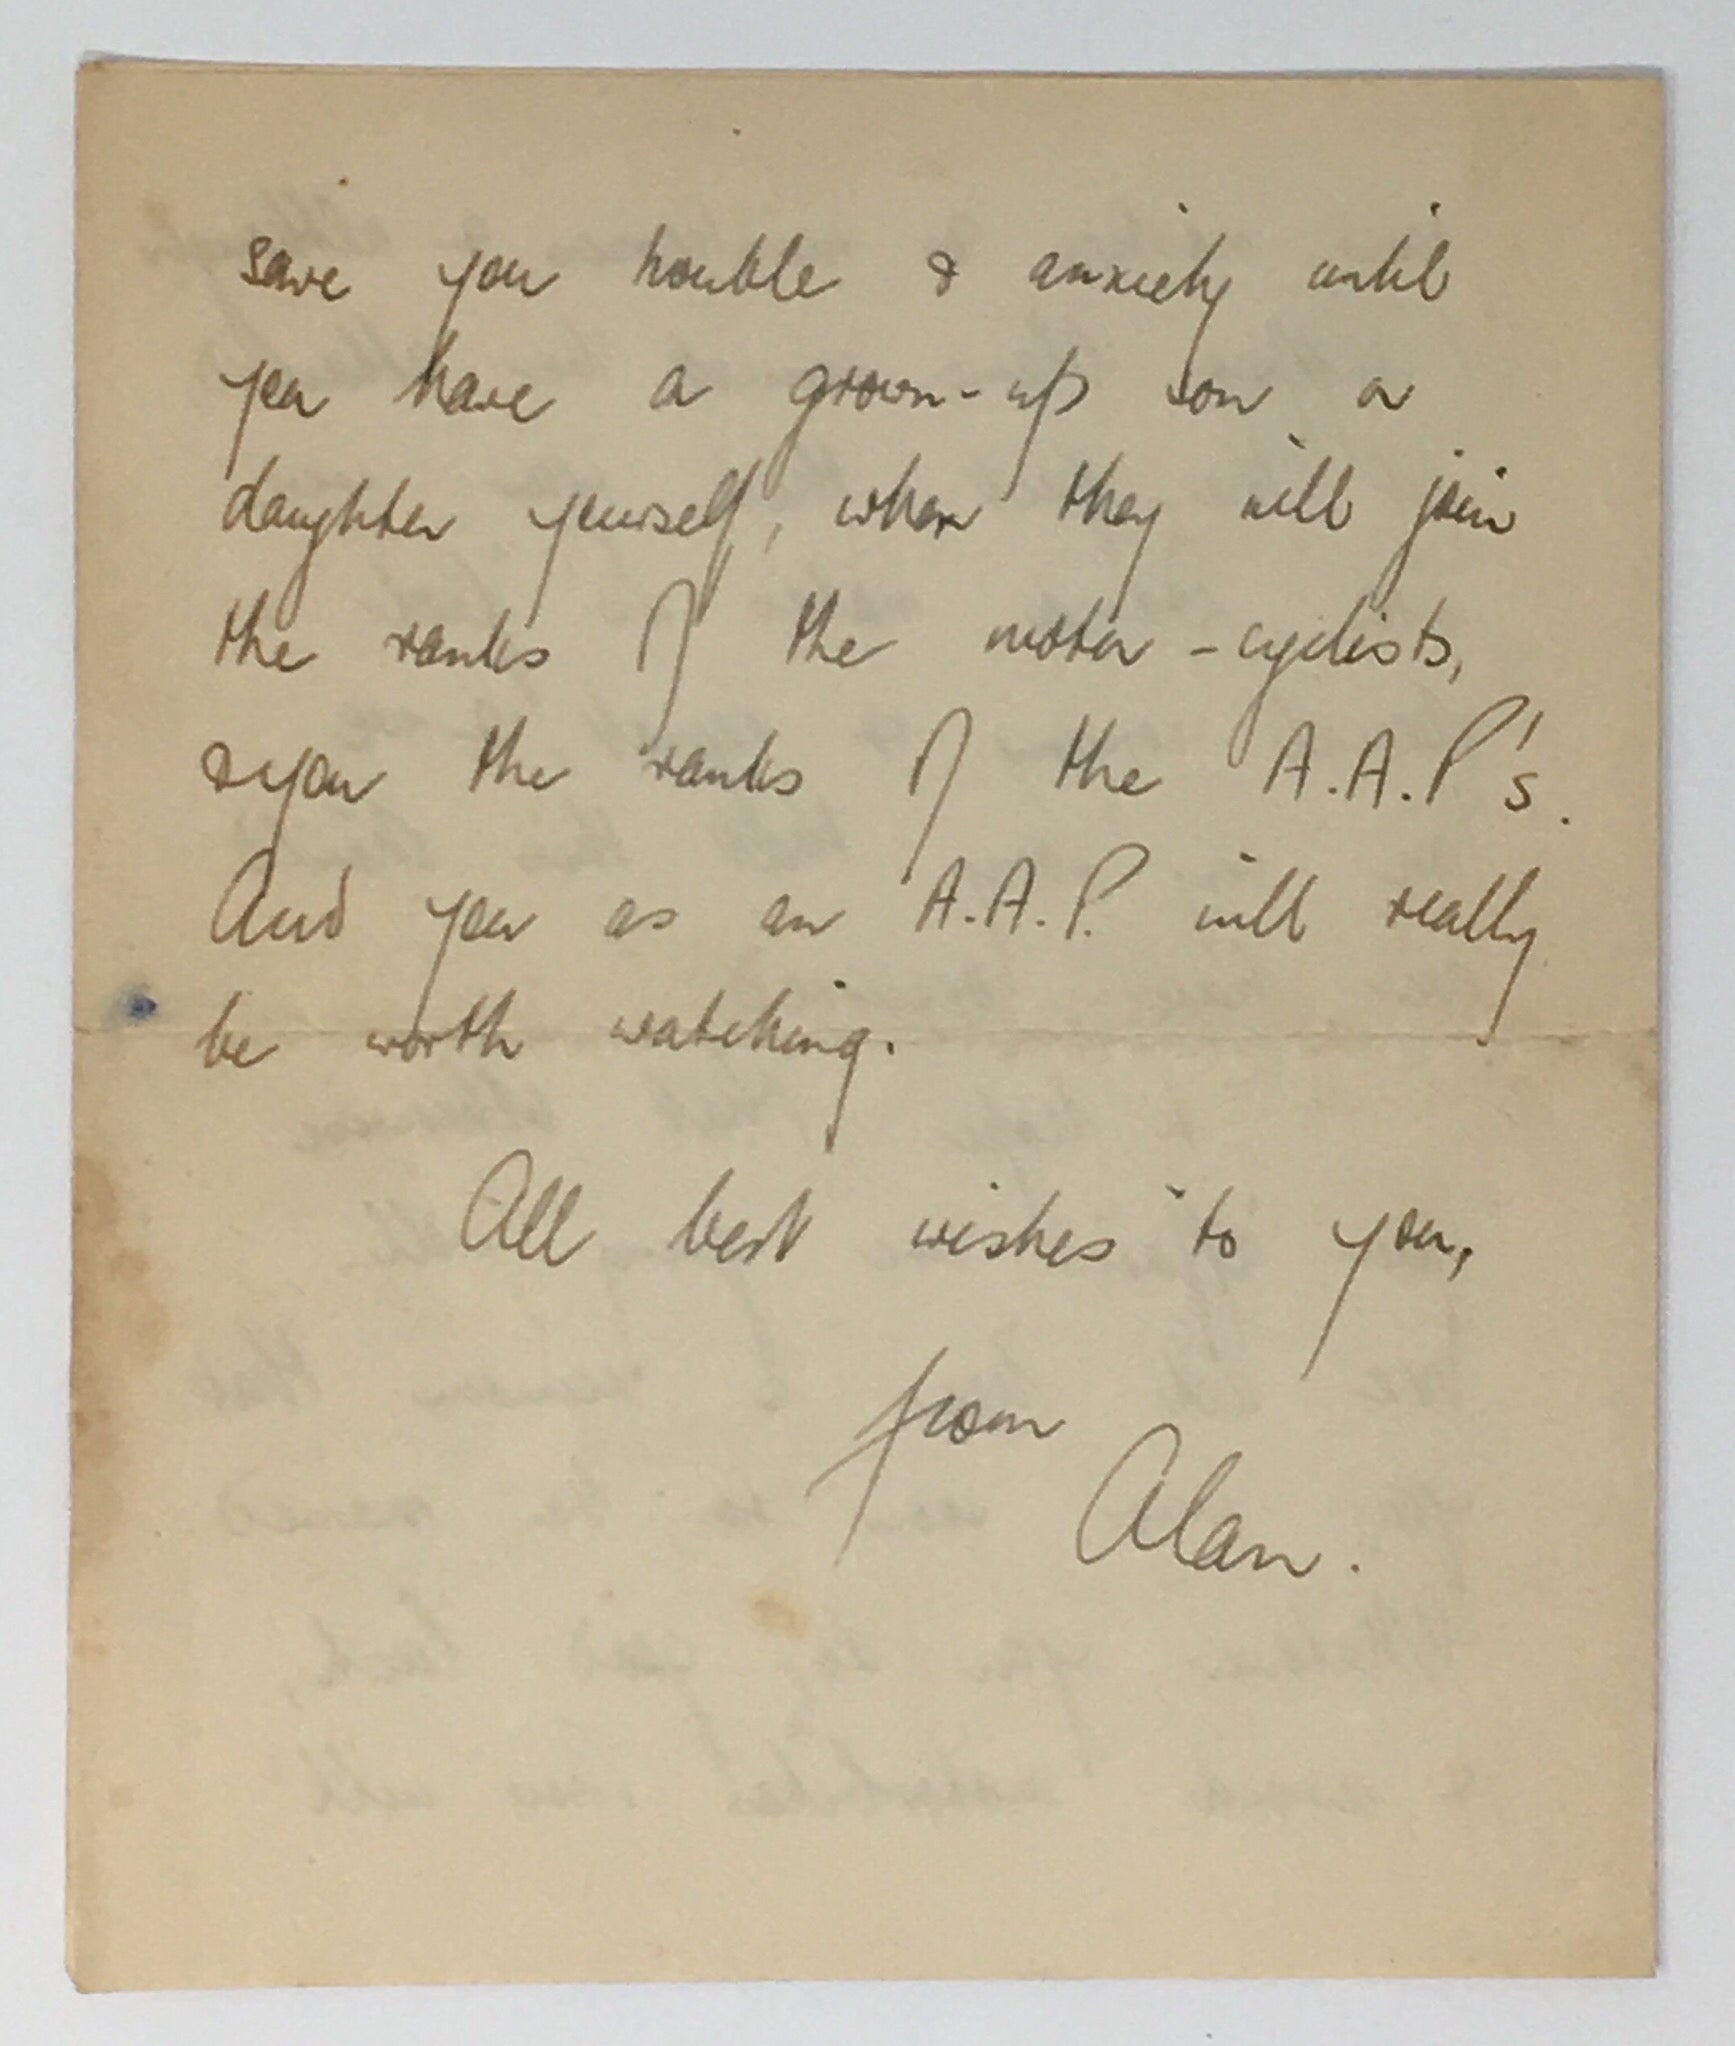 save you trouble & anxiety until
you have a grown-up son or
daughter yourself, when they will join
the ranks of the motor-cyclists,
& you the ranks of the A.A.P's.
And you as an A.A.P. will really
be worth watching.
All best wishes to you,
from
Alan.